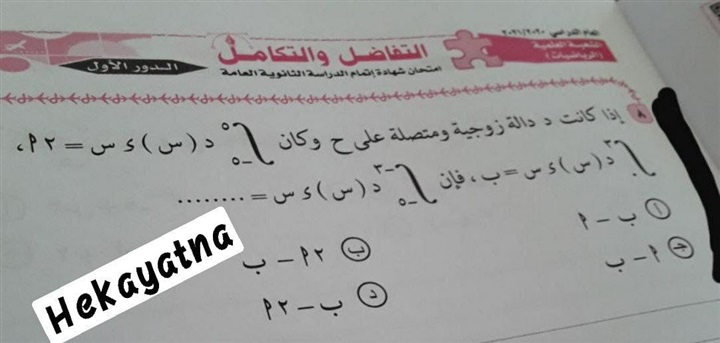 العام الدراسي ٢٠٢٠/٢٠٢١
الشعبة العلمية
(الرياضيات)
التفاضل والتكامل
امتحان شهادة إتمام الدراسة الثانوية العامة
الدور الأول
٨ إذا كانت د دالة زوجية ومتصلة على ح وكان ∫₋٥^٥ د (س) ء س = ٢ م ،
∫٠^٣ د (س) ء س = ب ، فإن ∫₋٥^−٣ د (س) ء س = ........
أ ب − م
ب ٢ م − ب
ج م − ب
د ب − ٢ م
Hekayatna